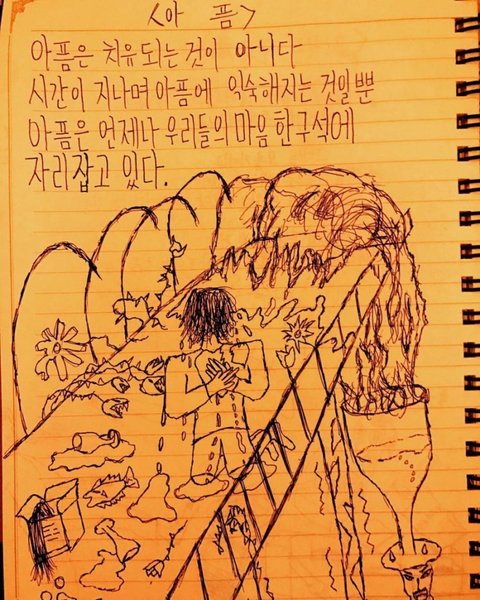 <아 픔>
아픔은 치유되는것이 아니다
시간이 지나며 아픔에 익숙해지는 것일뿐
아픔은 언제나 우리들의 마음 한구석에
자리잡고 있다.